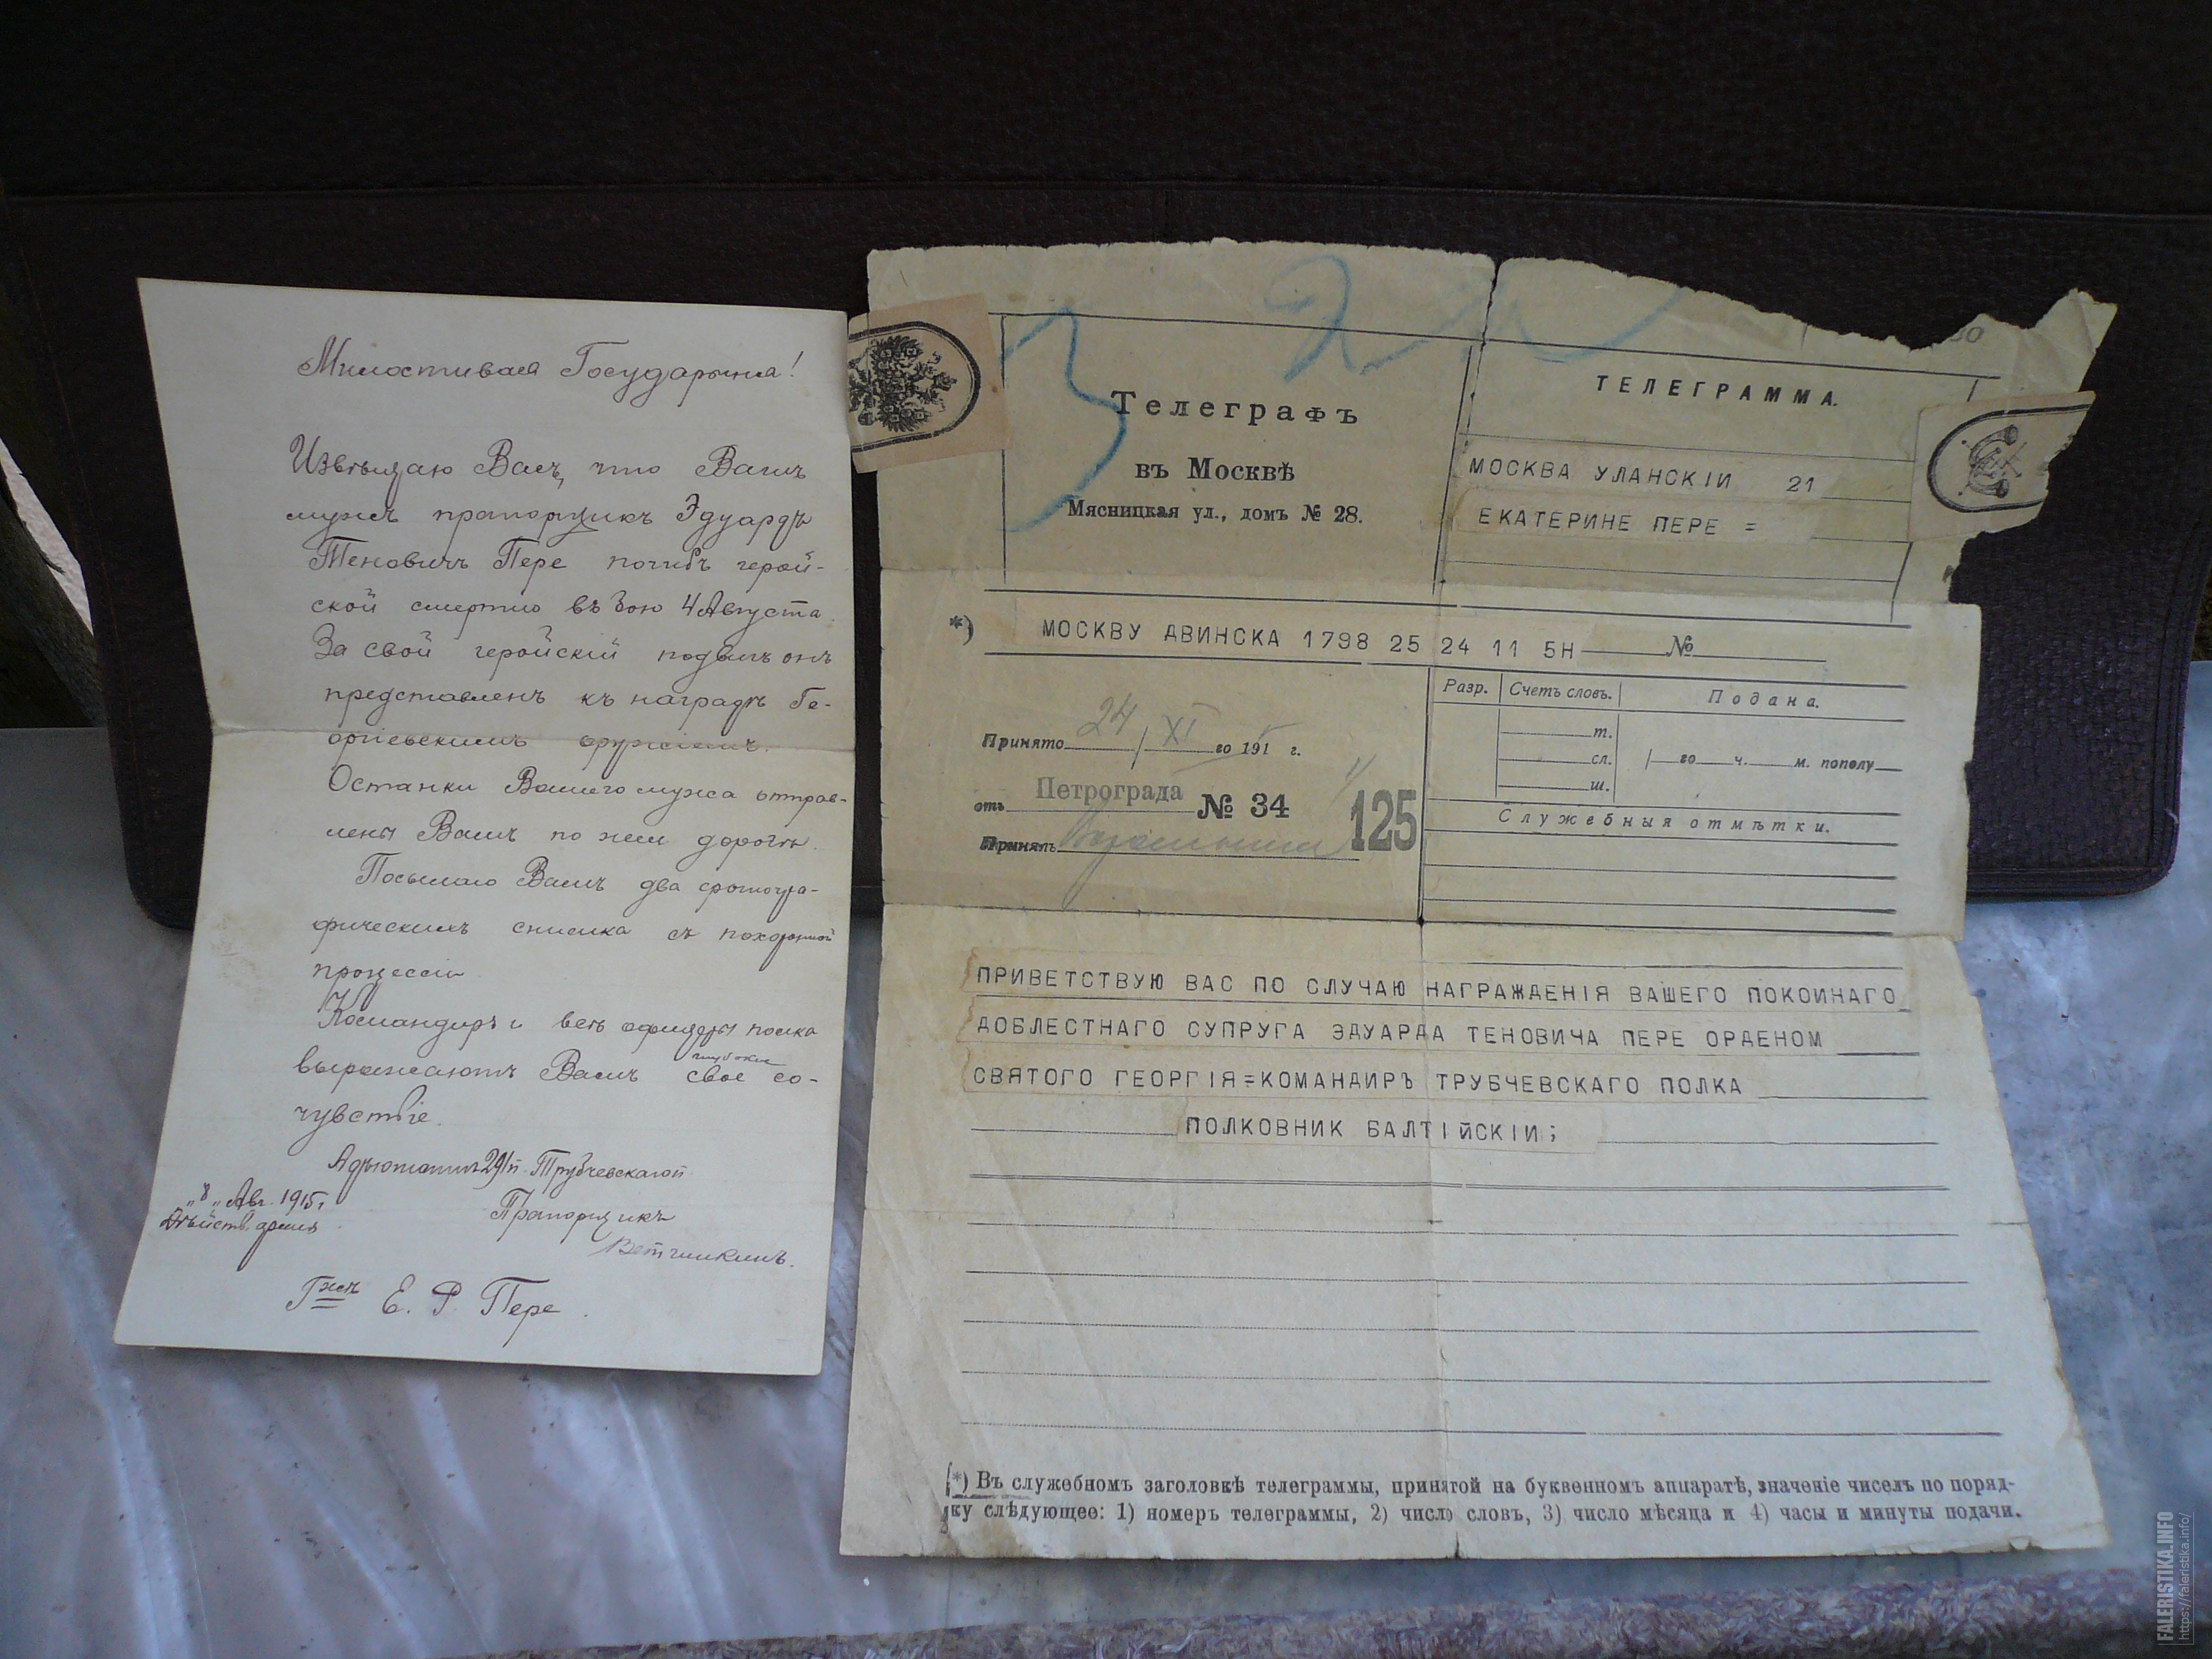 Милостивая Государыня!
Извѣщаю Васъ, что Вашъ
мужъ прапорщикъ Эдуардъ
Теновичъ Пере погибъ герой-
ской смертью въ бою 4 Августа.
За свой геройскій подвигъ онъ
представленъ къ наградѣ Ге-
оргіевскимъ оружіемъ.
Останки Вашего мужа отправ-
лены Вамъ по жел дорогѣ.
Посылаю Вамъ два фотогра-
фическихъ снимка съ похоронной
процессіи
Командиръ и всѣ офицеры полка
выражаютъ Вамъ свое глубокое со-
чувствіе.
Адъютантъ 291 п. Трубчевскаго п
"8" Авг. 1915 г
Дѣйств. армія
Прапорщикъ
Ветчинкинъ.
Гжѣ Е. Р. Пере
Телеграфъ
въ Москвѣ
Мясницкая ул., домъ № 28.
ТЕЛЕГРАММА.
МОСКВА УЛАНСКІИ 21
ЕКАТЕРИНЕ ПЕРЕ =
*) МОСКВУ ДВИНСКА 1798 25 24 11 5Н №
Принято 24/XI го 1915 г.
отъ Петрограда № 34
125
Принялъ
Разр. Счетъ словъ. Подана.
т.
сл. го ч. м. пополу
ш.
Служебныя отмѣтки.
ПРИВЕТСТВУЮ ВАС ПО СЛУЧАЮ НАГРАЖДЕНІЯ ВАШЕГО ПОКОИНАГО
ДОБЛЕСТНАГО СУПРУГА ЭДУАРДА ТЕНОВИЧА ПЕРЕ ОРДЕНОМ
СВЯТОГО ГЕОРГІЯ=КОМАНДИРЪ ТРУБЧЕВСКАГО ПОЛКА
ПОЛКОВНИК БАЛТІЙСКІИ;
*) Въ служебномъ заголовкѣ телеграммы, принятой на буквенномъ аппаратѣ, значеніе чиселъ по поряд-
ку слѣдующее: 1) номеръ телеграммы, 2) число словъ, 3) число мѣсяца и 4) часы и минуты подачи.
FALERISTIKA.INFO
https://faleristika.info/